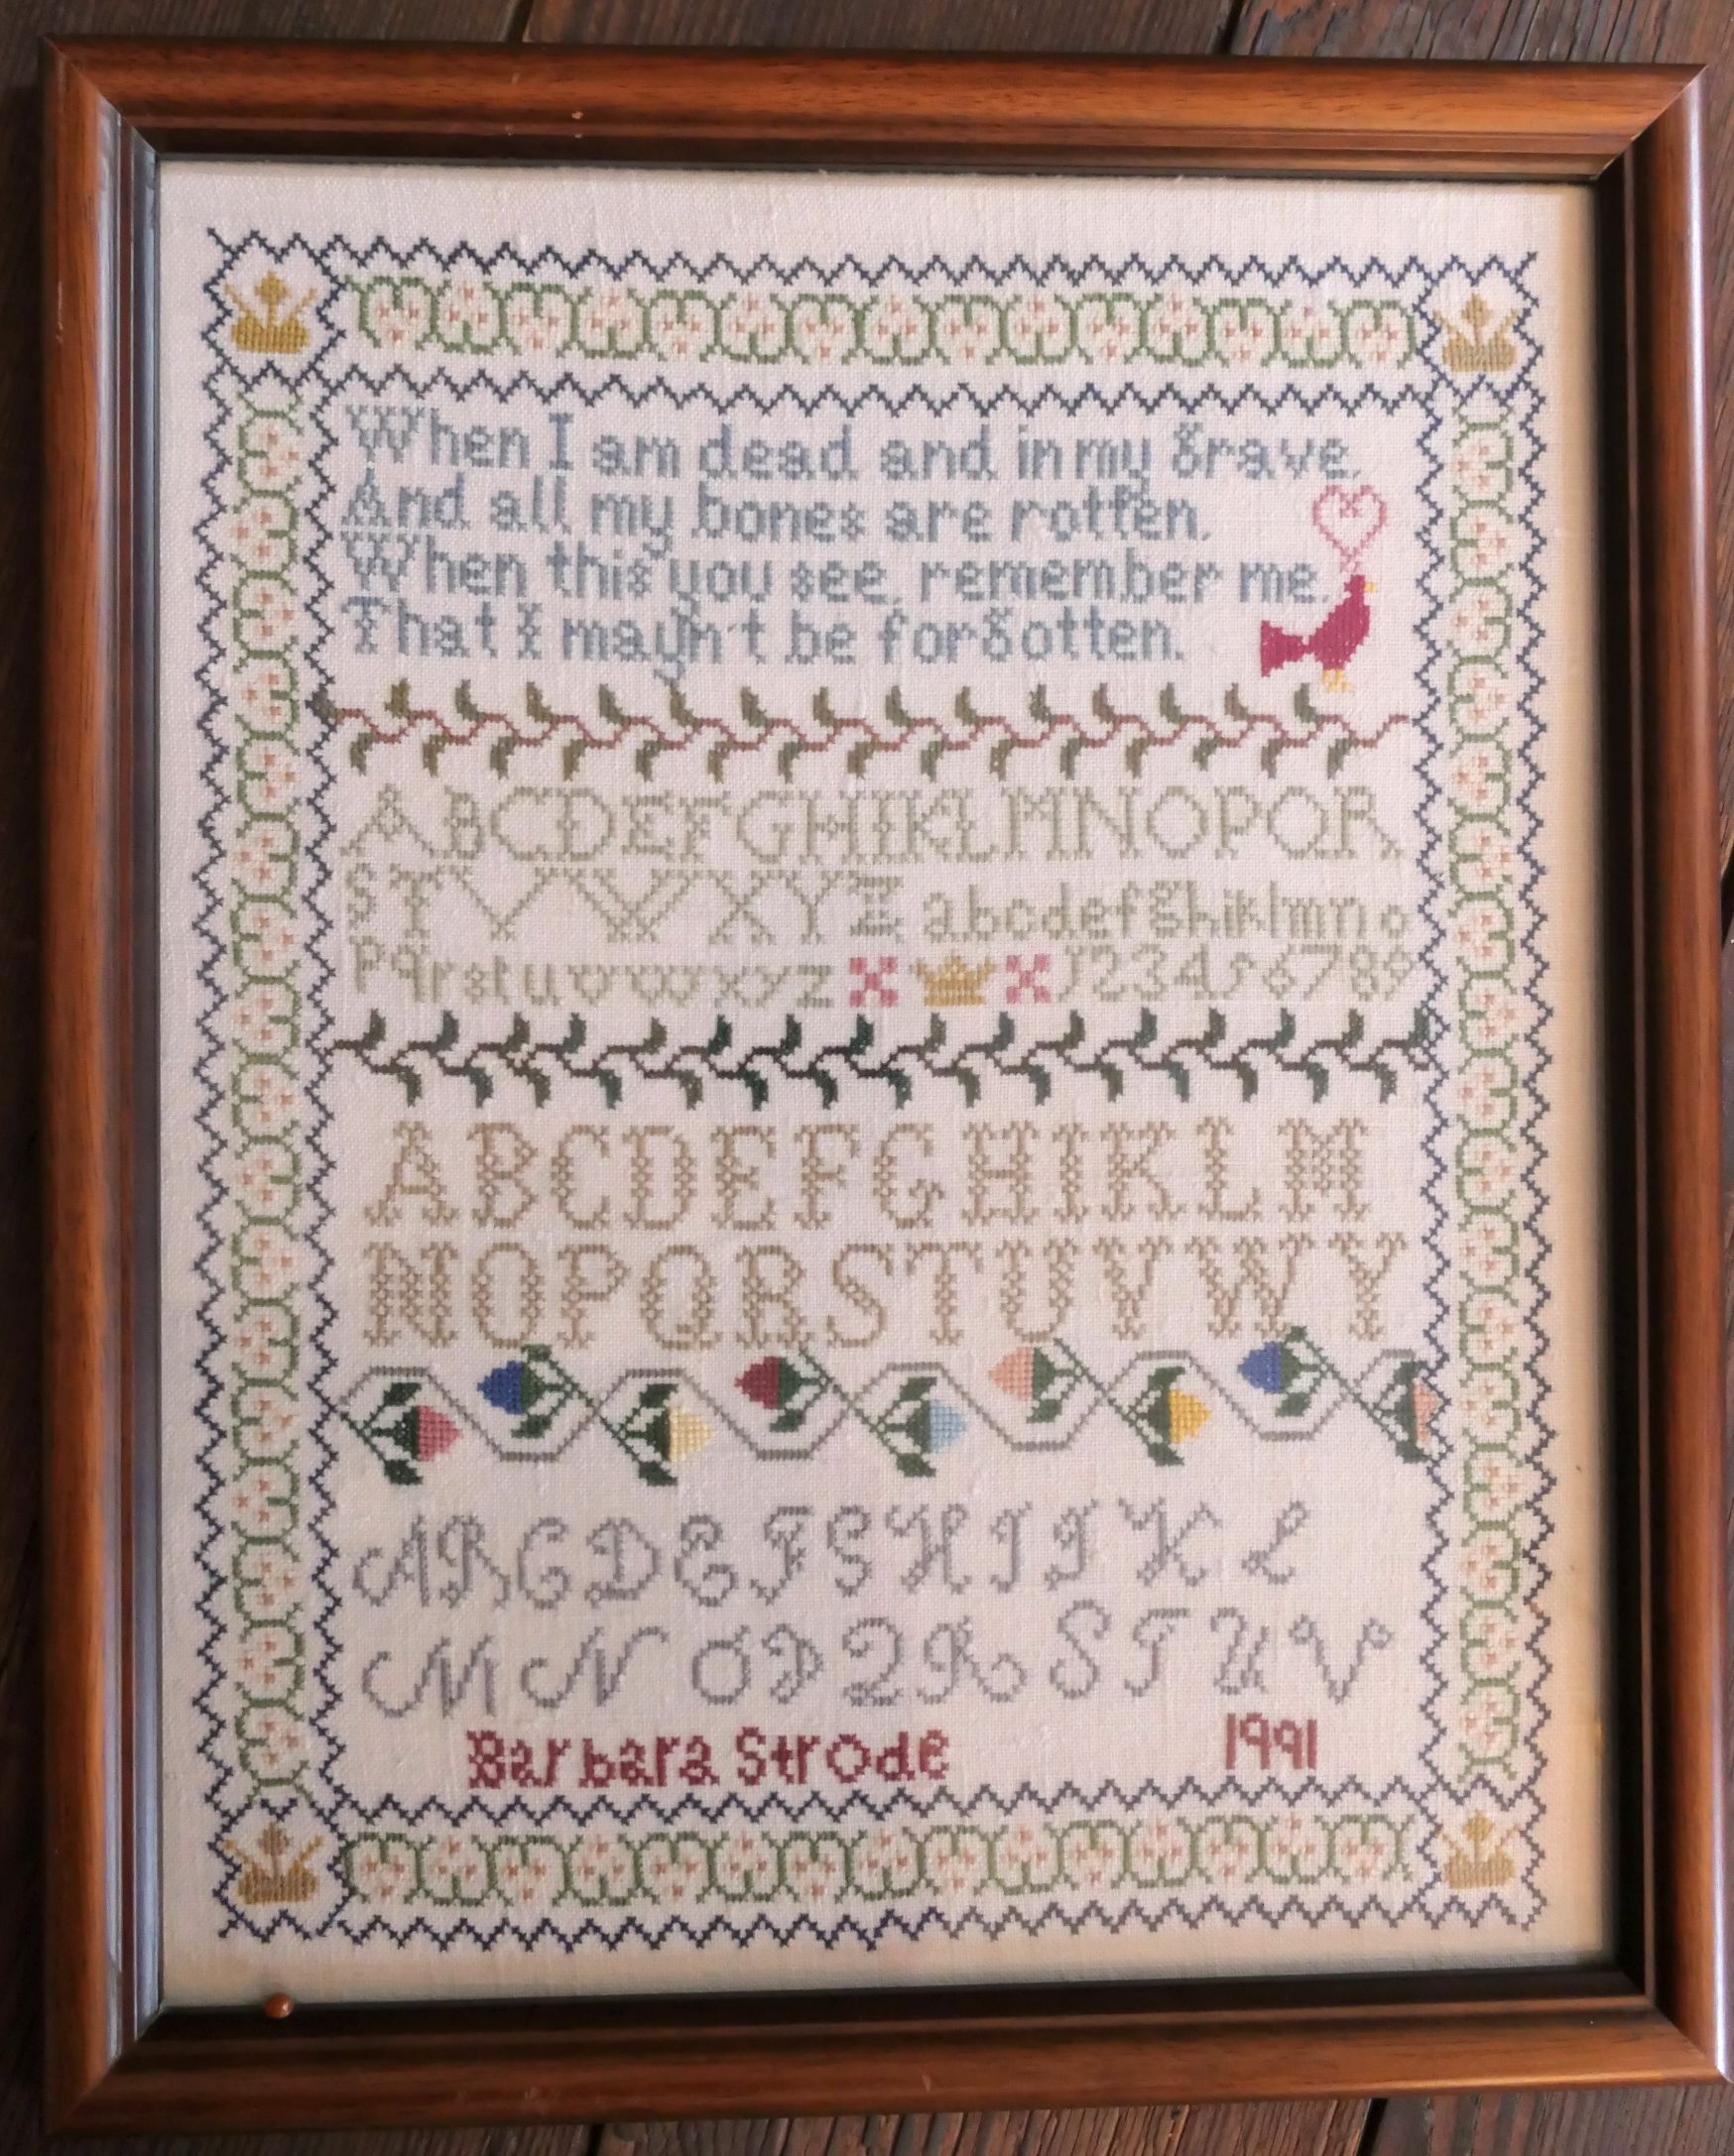 When I am dead and in my grave,
And all my bones are rotten,
When this you see, remember me,
That I mayn't be forgotten.
ABCDEFGHIKLMNOPQR
STVWXYZ abcdefghiklmno
pqrstuvwxyz 123456789
ABCDEFGHIKLM
NOPQRSTUVWY
ABCDEFGHIJKL
MNOPQRSTUV
Barbara Strode 1991